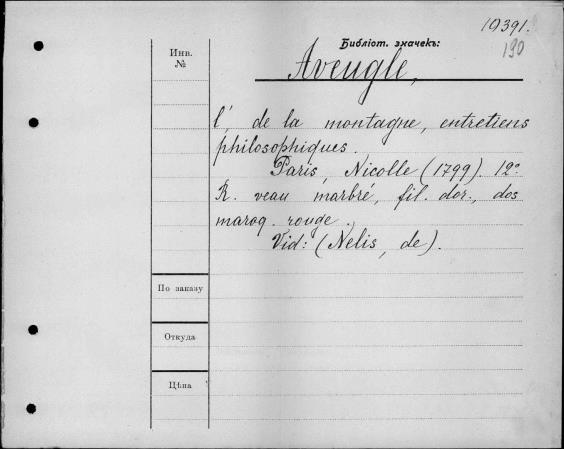 19391.
190
Библіот. значекъ:
Инв.
№
Aveugle,
l', de la montagne, entretiens
philosophiques.
Paris, Nicolle (1799). 12º
R. veau marbré, fil. dor., dos
maroq. rouge.
Vid: (Nelis, de).
По заказу
Откуда
Цѣна